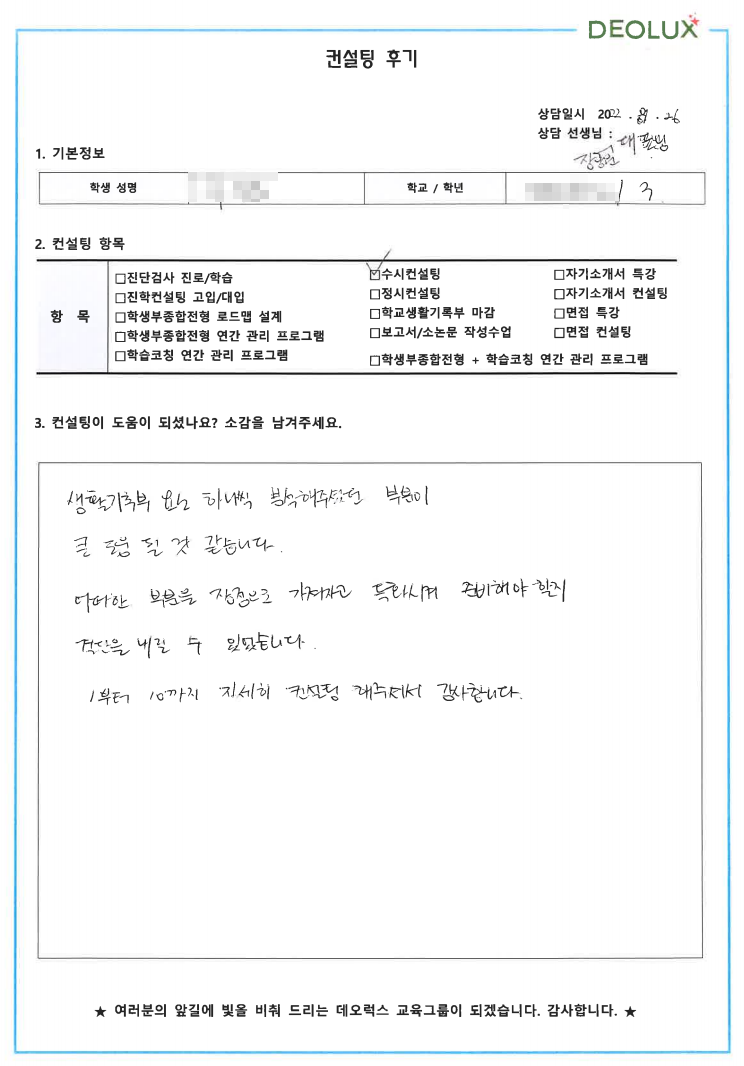 DEOLUX
컨설팅 후기
상담일시 2022 . 8 . 26
상담 선생님 :
대표님
1. 기본정보
학생 성명
학교 / 학년 / 3
2. 컨설팅 항목
항 목
□진단검사 진로/학습 ☑수시컨설팅 □자기소개서 특강
□진학컨설팅 고입/대입 □정시컨설팅 □자기소개서 컨설팅
□학생부종합전형 로드맵 설계 □학교생활기록부 마감 □면접 특강
□학생부종합전형 연간 관리 프로그램 □보고서/소논문 작성수업 □면접 컨설팅
□학습코칭 연간 관리 프로그램 □학생부종합전형 + 학습코칭 연간 관리 프로그램
3. 컨설팅이 도움이 되셨나요? 소감을 남겨주세요.
생활기록부 요소 하나씩 분석해주셨던 부분이
큰 도움 될 것 같습니다.
어떠한 부분을 장점으로 가져가고 특화시켜 준비해야 할지
결단을 내릴 수 있었습니다.
1부터 10까지 자세히 컨설팅 해주셔서 감사합니다.
★ 여러분의 앞길에 빛을 비춰 드리는 데오럭스 교육그룹이 되겠습니다. 감사합니다. ★